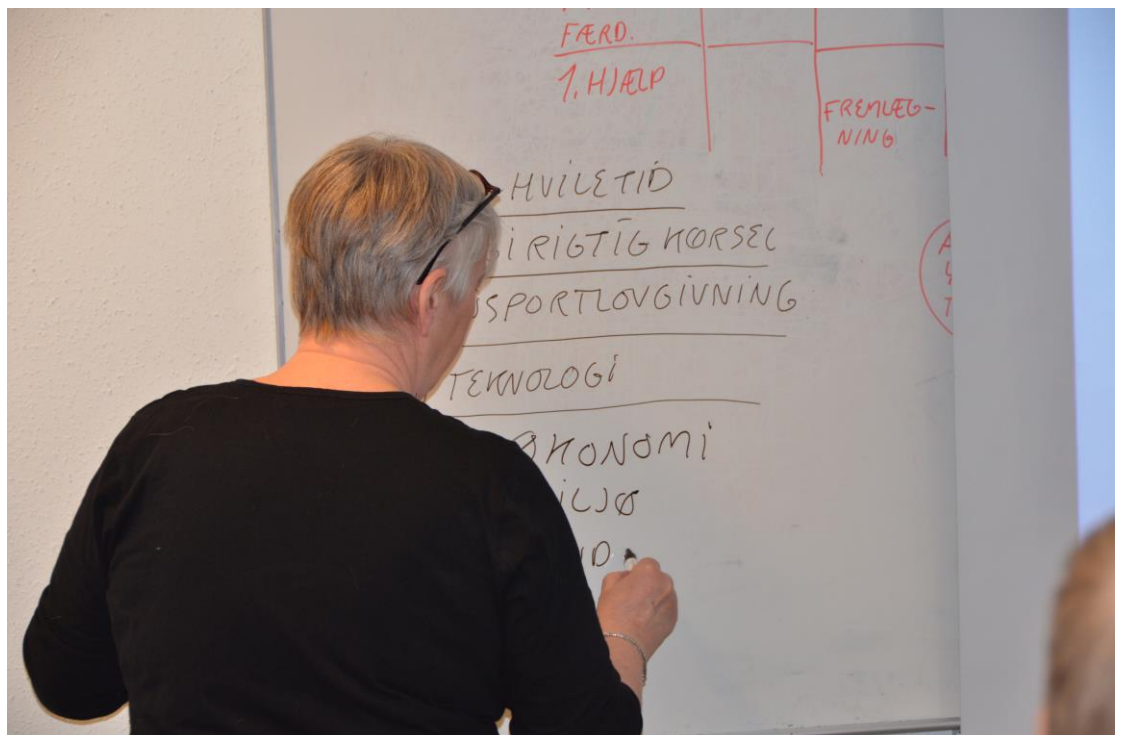 FÆRD.
1. HJÆLP
FREMLÆG-
NING
HVILETID
I RIGTIG KØRSEL
SPORTLOVGIVNING
TEKNOLOGI
ØKONOMI